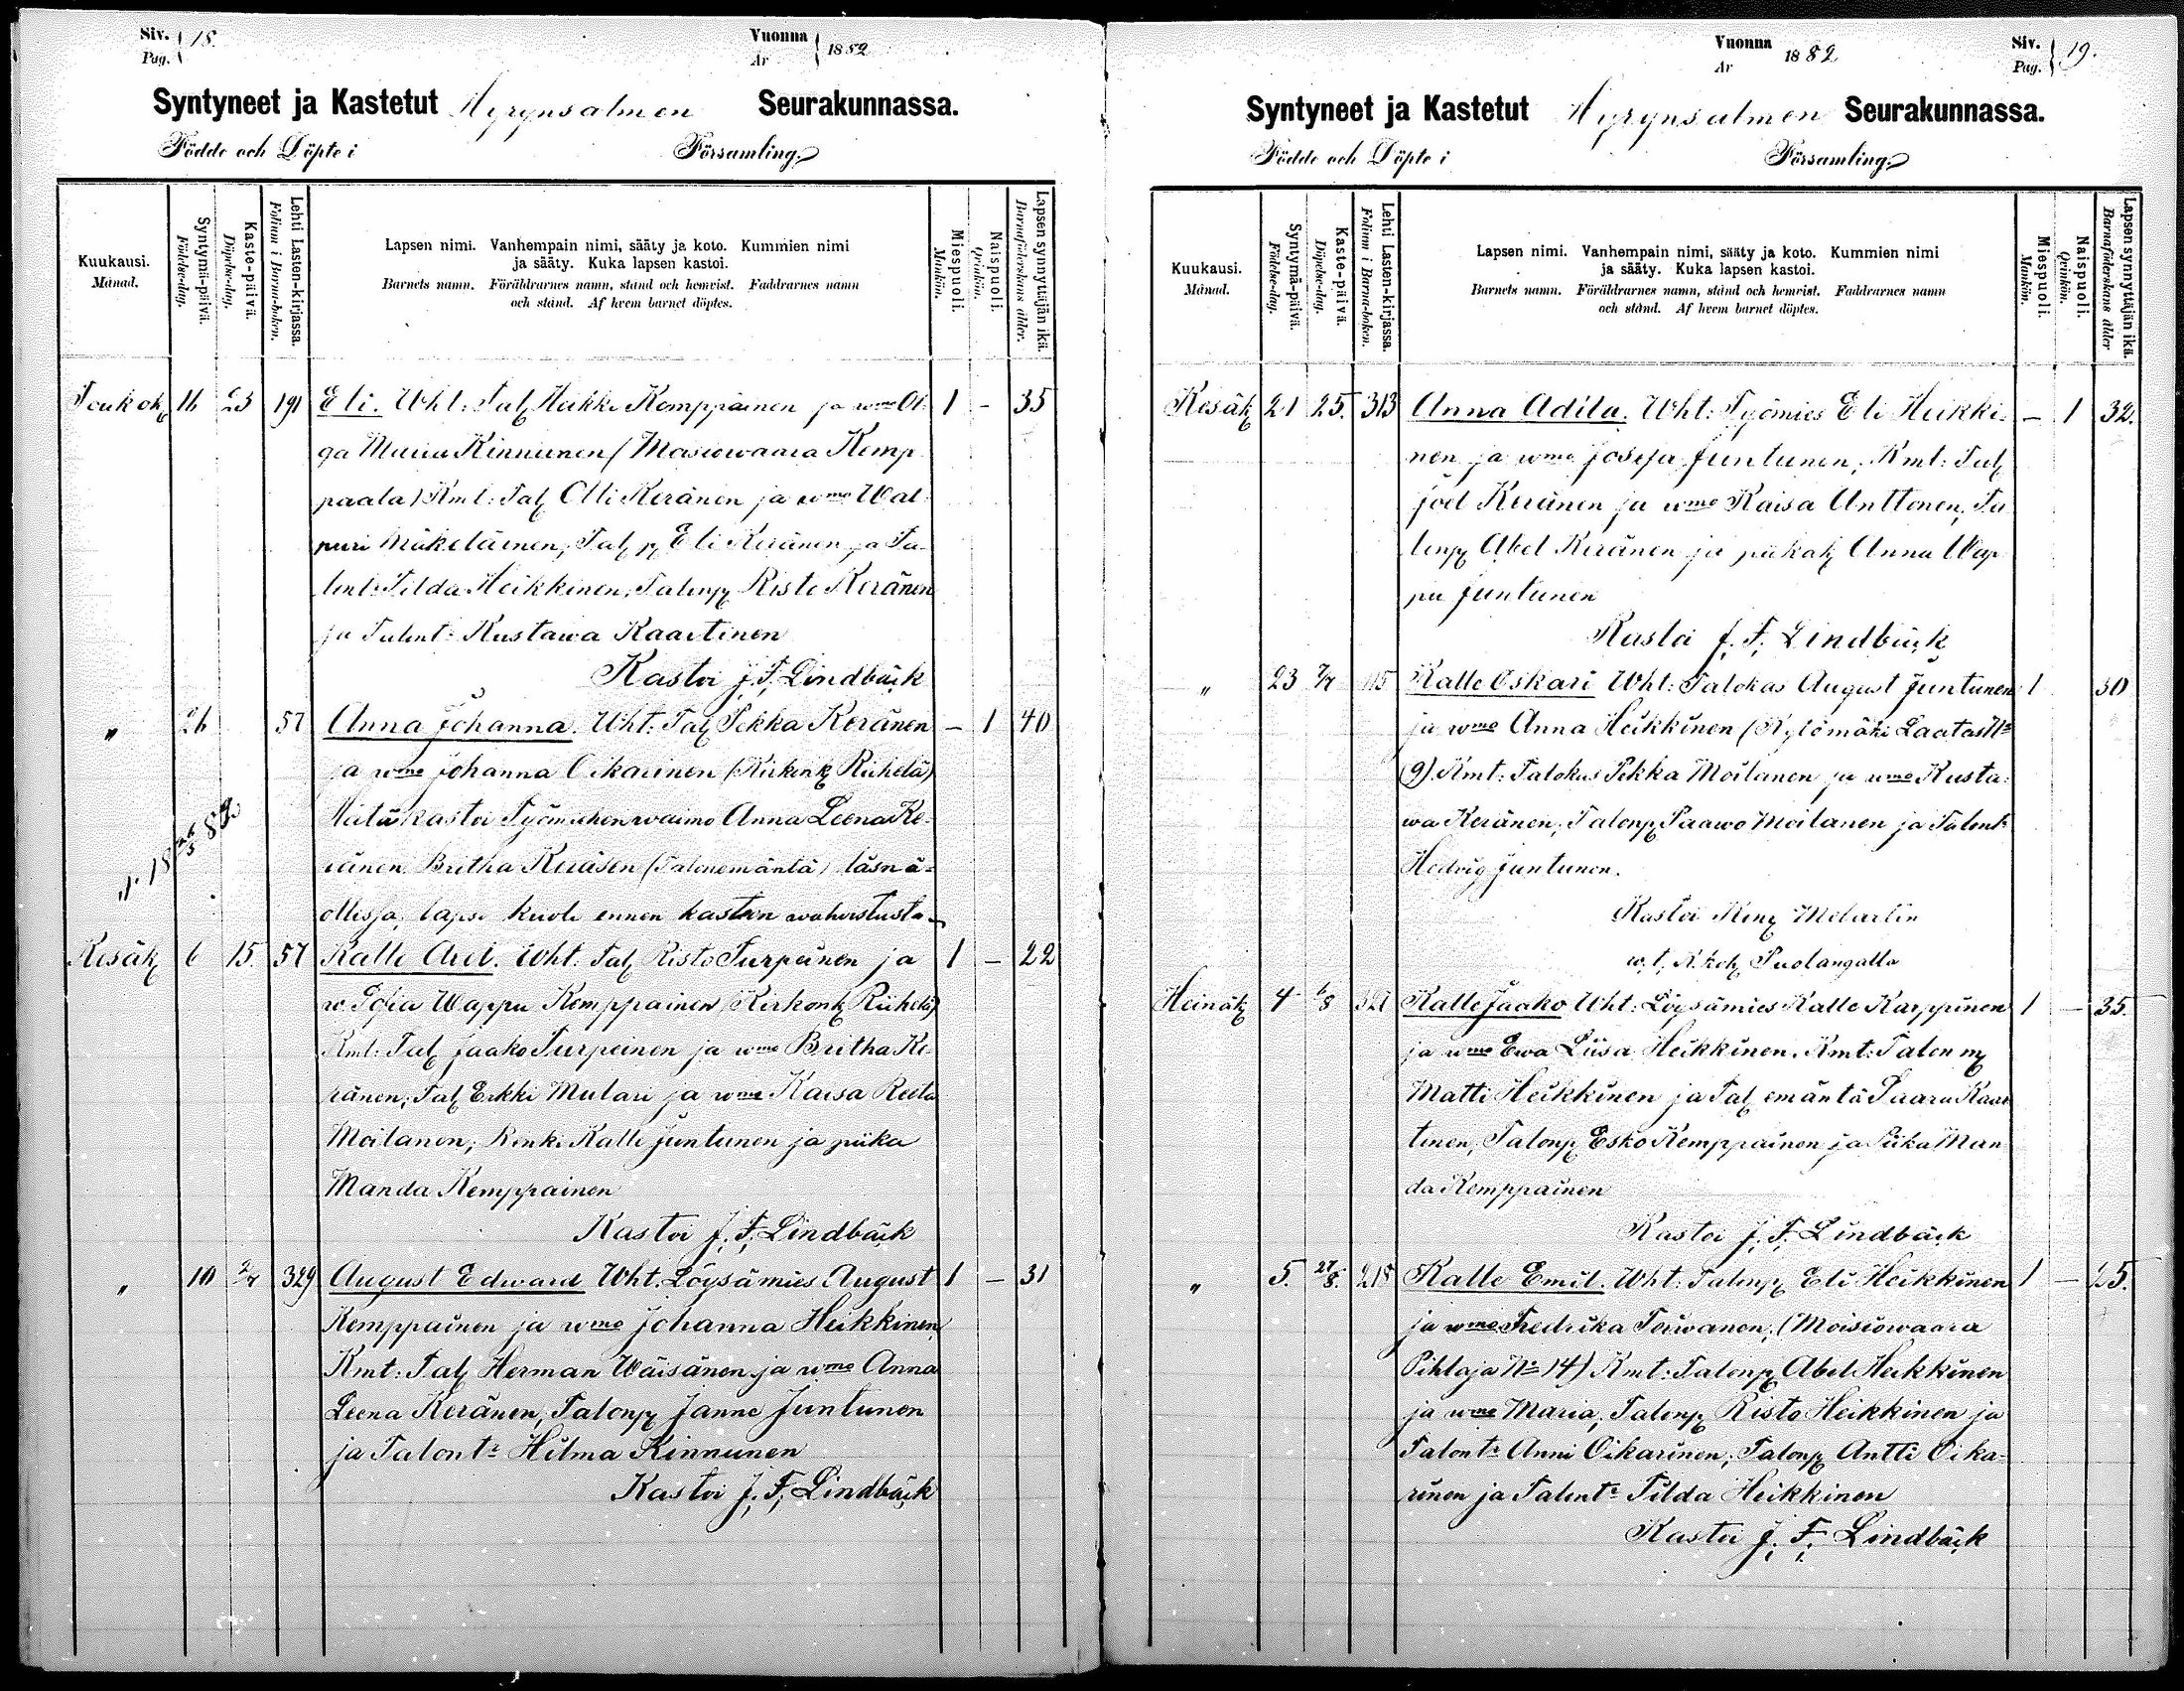 Siv. Pag. 18.
Vuonna År 1882
Syntyneet ja Kastetut Hyrynsalmen Seurakunnassa.
Födde och Döpte i Församling.
Kuukausi. Månad.
Syntymä-päivä. Födelse-dag.
Kaste-päivä. Döpelse-dag.
Lehti Lasten-kirjassa. Folium i Barna-boken.
Lapsen nimi. Vanhempain nimi, sääty ja koto. Kummien nimi
ja sääty. Kuka lapsen kastoi.
Barnets namn. Föräldrarnes namn, stånd och hemvist. Faddrarnes namn
och stånd. Af hvem barnet döptes.
Miespuoli. Mankön.
Naispuoli. Qvinkön.
Lapsen synnyttäjän ikä. Barnaföderskans ålder.
Toukok 16 23 191 Eli. Wht: Tal Heikki Kemppainen ja wmo Ol- 1 - 35
ga Maria Kinnunen (Moisiowaara Kemp
paala) Kmt: Tal Olli Keränen ja wmo Wal
puri Mäkeläinen, Tal p Eli Keränen ja Ta-
lont: Tilda Heikkinen, Talonp Risto Keränen
ja Talont: Kustawa Kaartinen
Kastoi J. F. Lindbäck
" 26 57 Anna Johanna. Wht: Tal Pekka Keränen - 1 40
ja wmo Johanna Oikarinen (Kirkonk Riihelä)
Hätäkastoi Työmiehen waimo Anna Leena Ke-
ränen Britha Keräsen (Talonemäntä) läsnä-
ollessa, lapsi kuoli ennen kasteen wahwistusta
Kesäk 6 15. 57 Kalle Axel. Wht. Tal Risto Turpeinen ja 1 - 22
w. Sofia Wappu Kemppainen (Kirkonk Riihelä)
Kmt: Tal Jaako Turpeinen ja wmo Britha Ke-
ränen, Tal Erkki Mulari ja wmo Kaisa Reeta
Moilanen, Renki Kalle Juntunen ja piika
Manda Kemppainen
Kastoi J. F. Lindbäck
" 10 2/7 329 August Edward Wht. Löysämies August 1 - 31
Kemppainen ja wmo Johanna Heikkinen,
Kmt: Tal Herman Wäisänen ja wmo Anna
Leena Keränen, Talonp Janne Juntunen
ja Talont: Hilma Kinnunen
Kastoi J. F. Lindbäck
Vuonna År 1882
Siv. Pag. 19.
Syntyneet ja Kastetut Hyrynsalmen Seurakunnassa.
Födde och Döpte i Församling.
Kuukausi. Månad.
Syntymä-päivä. Födelse-dag.
Kaste-päivä. Döpelse-dag.
Lehti Lasten-kirjassa. Folium i Barna-boken.
Lapsen nimi. Vanhempain nimi, sääty ja koto. Kummien nimi
ja sääty. Kuka lapsen kastoi.
Barnets namn. Föräldrarnes namn, stånd och hemvist. Faddrarnes namn
och stånd. Af hvem barnet döptes.
Miespuoli. Mankön.
Naispuoli. Qvinkön.
Lapsen synnyttäjän ikä. Barnaföderskans ålder
Kesäk 21 25. 313 Anna Adila. Wht: Työmies Eli Heikki- - 1 32.
nen ja wmo Josefa Juntunen, Kmt: Tal
Joel Keränen ja wmo Kaisa Anttonen, Ta
lonp Abel Keränen ja piika Anna Wap
pu Juntunen
Kastoi J. F. Lindbäck
" 23 7/7 115 Kalle Oskari Wht: Talokas August Juntunen 1 30
ja wmo Anna Heikkinen (Kylömäki Laatas No
9). Kmt: Talokas Pekka Moilanen ja wmo Kusta-
wa Keränen, Talonp Paawo Moilanen ja Talont:
Hedvig Juntunen.
Kastoi Melartin
w. t. Puolangalla
Heinäk 4 6/8 327 Kalle Jaako Wht: Löysämies Kalle Karppinen 1 - 35.
ja wmo Ewa Liisa Heikkinen. Kmt: Talon
Matti Heikkinen ja Tal emäntä Saara Kaar
tinen, Talonp Esko Kemppainen ja Piika Man
da Kemppainen
Kastoi J. F. Lindbäck
" 5. 27/8. 218 Kalle Emil. Wht: Talonp Eli Heikkinen 1 - 25.
ja wmo Fredrika Toiwanen, (Moisiowaara
Pihlaja No 14) Kmt: Talonp Abel Heikkinen
ja wmo Maria, Talonp Risto Heikkinen ja
Talont: Anni Oikarinen, Talonp Antti Oika-
rinen ja Talont: Tilda Heikkinen
Kastoi J. F. Lindbäck